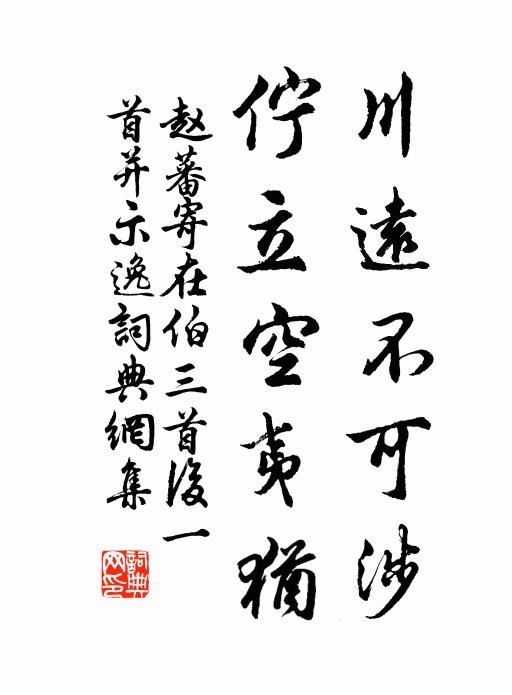 川遠不可涉
佇立空夷猶
赵蕃寄在伯三首後一
首并示逸詞典網集
詞典
网印